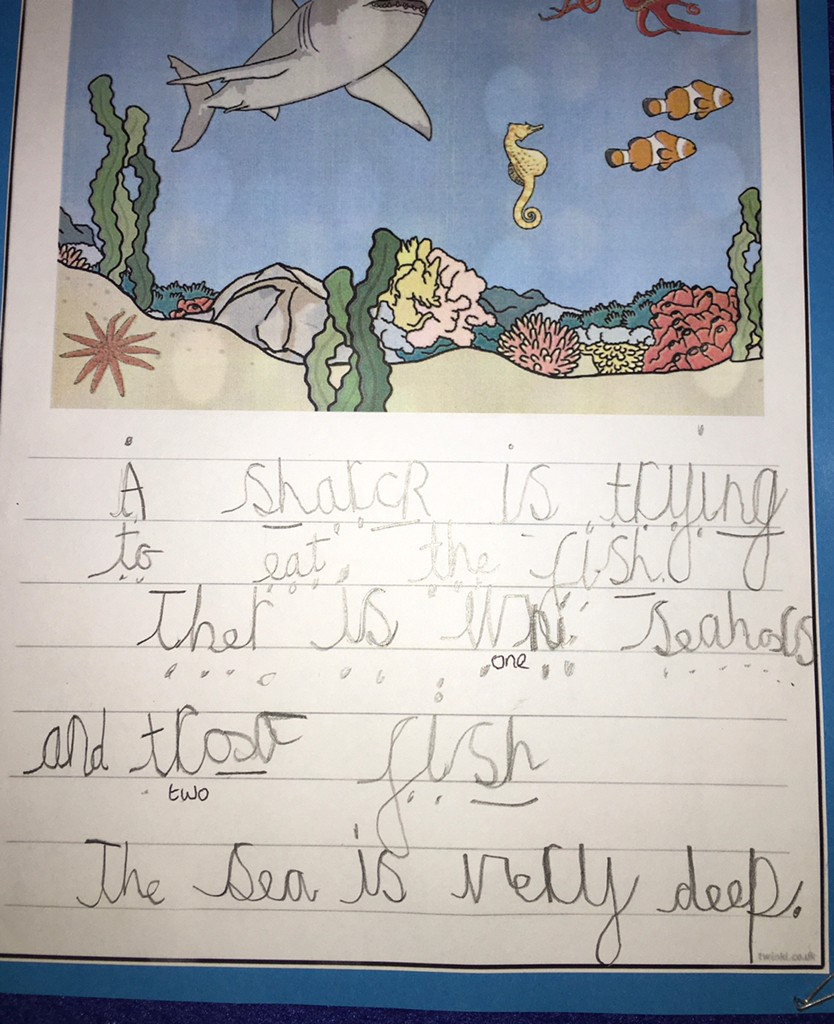 A sharck is trying
to eat the fish.
Ther is wni seahors
one
and fish
two
The sea is very deep.
twinkl.co.uk